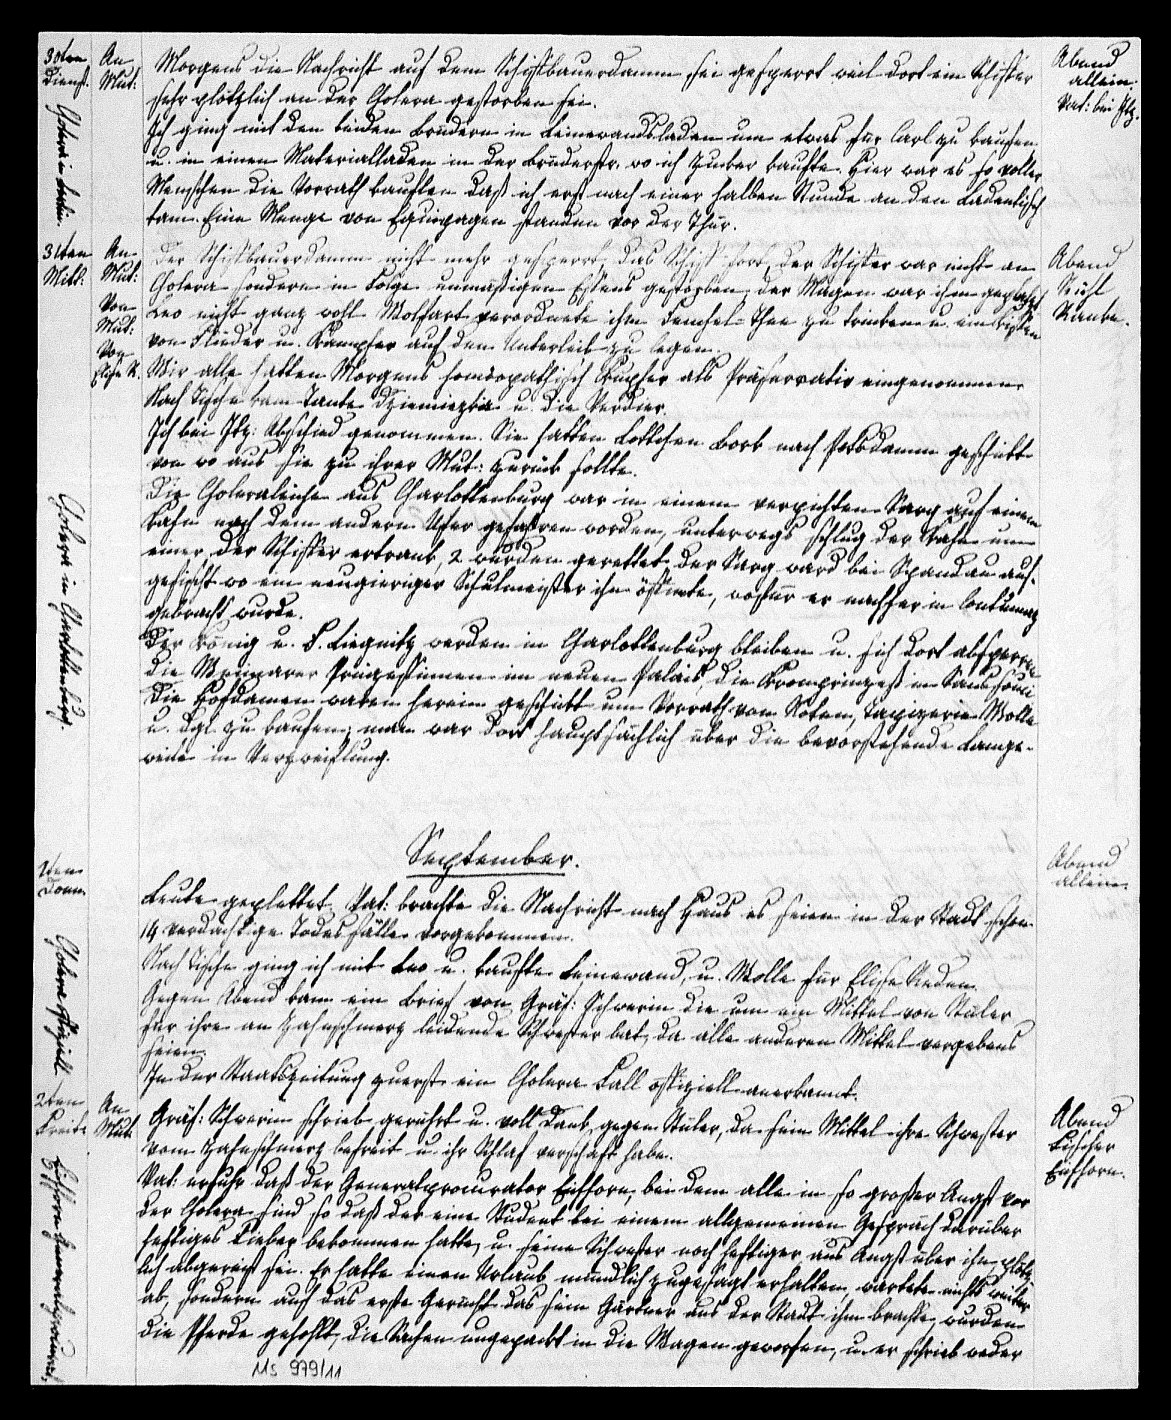 30ten
Dienst.
An
Mut:
Cholera in Berlin.
Morgens die Nachricht auf dem Schiffbauerdamm sei gesperrt weil dort ein Schiffer
sehr plötzlich an der Cholera gestorben sei.
Ich ging mit den beiden Brüdern in Leinewandladen um etwas für Carl zu kaufen
u. in einen Materialladen in der Brüderstr. wo ich Zucker kaufte. Hier war es so voller
Menschen die Vorrath kauften daß ich erst nach einer halben Stunde an den Ladentisch
kam. Eine Menge von Equipagen standen vor der Thür.
Abend
allein.
Vat: bei
31ten
Mitt:
An
Mut:
Von
Mut:
Von
Elise K.
Der Schiffbauerdamm nicht mehr gesperrt, das Schiff fort, der Schiffer war nicht an
Cholera sondern in Folge unmäßigen Essens gestorben, der Magen war ihm geplatzt
Leo nicht ganz wohl Wolfart verordnete ihm Fenchel-Thee zu trinken u. ein Kissen
von Flieder u. Kampfer auf den Unterleib zu legen.
Wir alle hatten Morgens homöopathisch Kupfer als Präservativ eingenommen.
Nach Tische kam Tante Dziemiezka u. die Verdier.
Ich bei Abschied genommen. Sie hatten Lottchen Bork nach Potsdamm geschickt
von wo aus sie zu ihrer Mut: zurück sollte.
Abend
Stuhl
Cholera in Charlottenburg
Die Choleraleiche aus Charlottenburg war in einem verpichten Sarg auf einem
Kahn nach dem andern Ufer gefahren worden, unterwegs schlug der Kahn um
einer, der Schiffer ertrank, 2 wurden gerettet der Sarg ward bei Spandau auf-
gefischt wo ein neugieriger Schulmeister ihn öffnete, wofür er nachher in Contumaz
gebracht wurde.
Der König u. F. Liegnitz werden in Charlottenburg bleiben u. sich dort absperren
die Weimarer Prinzessinnen im neuen Palais, die Kronprinzeß in Sanssouci
Die Hofdamen waren herein geschickt um Vorrath von Noten, Tapizerie Wolle
u. dgl zu kaufen; man war dort hauptsächlich über die bevorstehende Lange-
weile in Verzweiflung.
September.
1ten
Donn.
Cholera offiziell
Leute geplettet. Vat: brachte die Nachricht nach Haus es seien in der Stadt schon
14 verdächtige Todesfälle vorgekommen.
Nach Tische ging ich mit Leo u. kaufte Leinewand, u. Wolle für Elise Reden.
Gegen Abend kam ein Brief von Gräf: Schwerin die um ein Mittel von Stüler
für ihre an Zahnschmerz leidende Schwester bat, da alle anderen Mittel vergebens
seien.
In der Staatszeitung zuerst ein Cholera Fall offiziell anerkannt.
Abend
allein.
2ten
Freit:
An
Mut:
Eichhorn Generalprocurat.
Gräf: Schwerin schrieb gerührt u. voll Dank gegen Stüler, da sein Mittel ihre Schwester
vom Zahnschmerz befreit u. ihr Schlaf verschafft habe.
Vat: erfuhr daß der Generalprocurator Eichhorn, bei dem alle in so großer Angst vor
der Cholera sind so daß der eine Student bei einem allgemeinen Gespräch darüber
heftiges Fieber bekommen hatte, u. seine Schwester noch heftiger aus Angst über ihn, plötz-
lich abgereist sei. Er hatte einen Urlaub mündlich zugesagt erhalten, wartete nichts weiter
ab, sondern auf das erste Gerücht das sein Gärtner aus der Stadt ihm brachte, wurden
die Pferde geholt, die Sachen ungepackt in die Wagen geworfen, u. er schrieb weder
Abend
Fischer
Eichhorn.
Ms 979/11